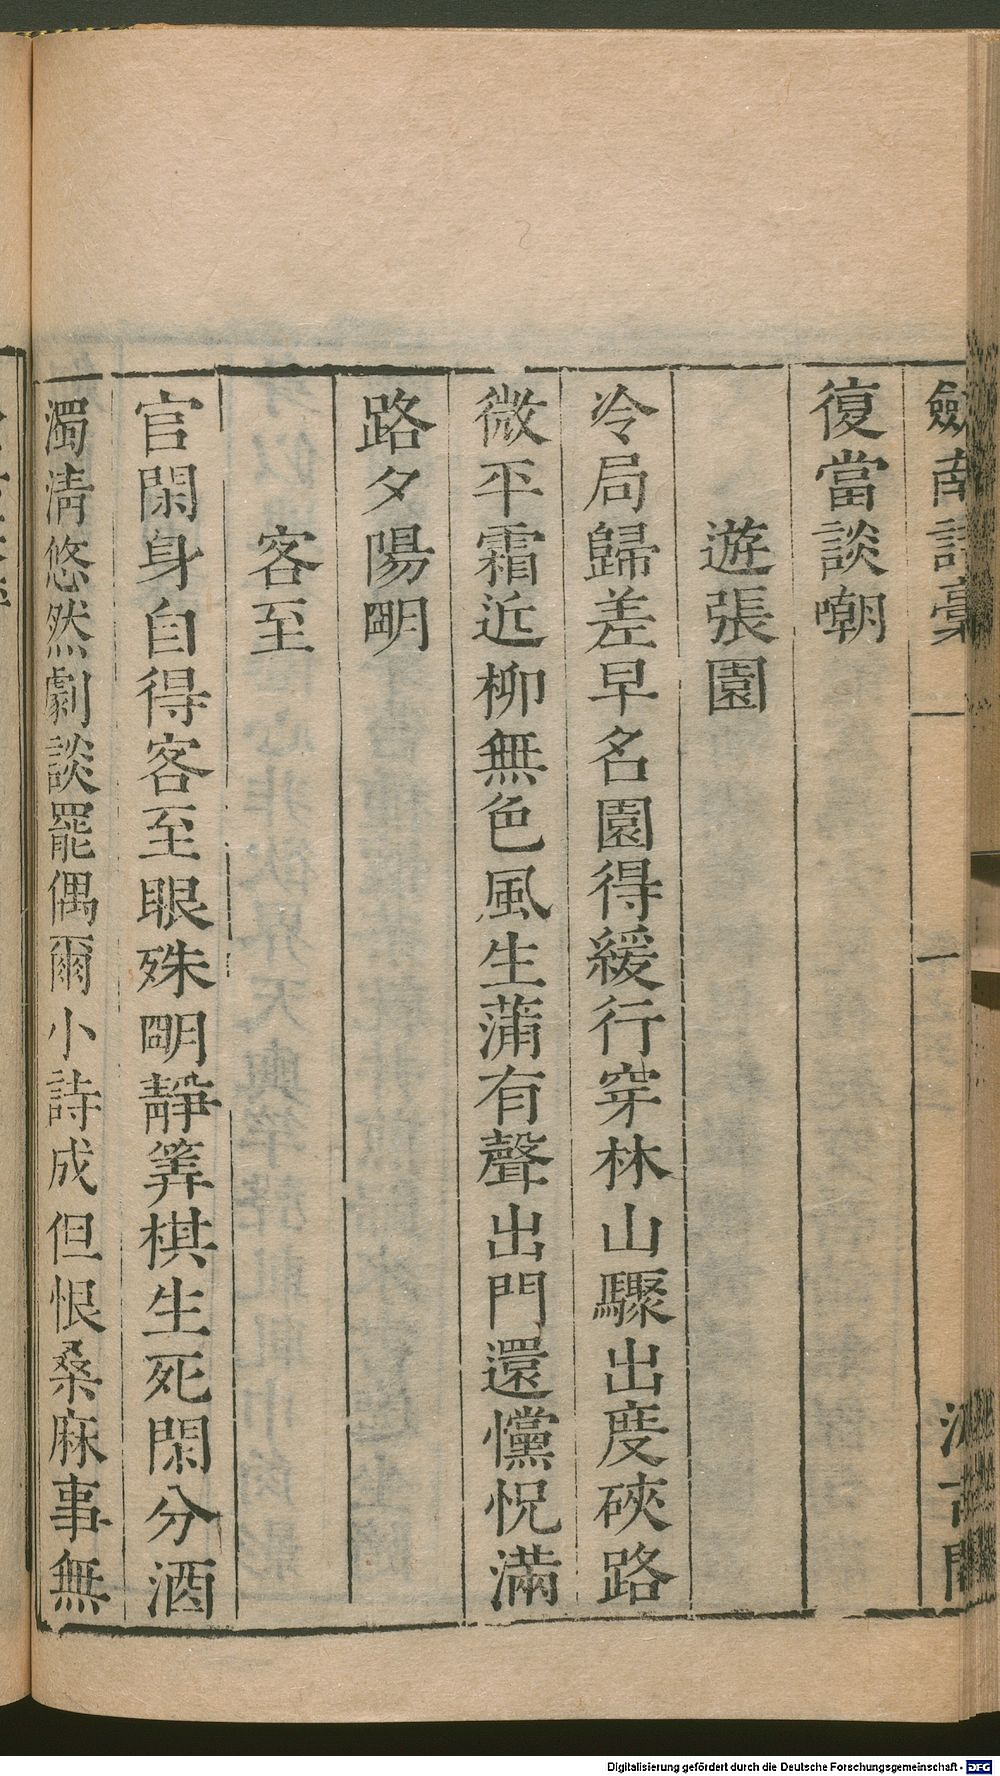 劍南詩稾 一
復當談嘲
遊張園
冷局歸差早名園得緩行穿林山驟出度硤路
微平霜近柳無色風生蒲有聲出門還戃怳滿
路夕陽朙
客至
官閑身自得客至眼殊朙靜筭棋生死閑分酒
濁淸悠然劇談罷偶爾小詩成但恨桑麻事無
Digitalisierung gefördert durch die Deutsche Forschungsgemeinschaft - DFG